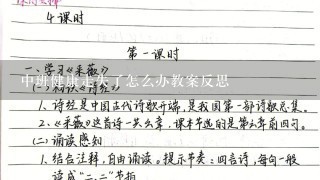 课时安排
4课时
第一课时
一、学习《采薇》
中班健康走失了怎么办教案反思
(一)初识《诗经》
1、诗经是中国古代诗歌开端，是我国第一部诗歌总集。
2、《采薇》这首诗一共六章，课本节选的是第六章前四句。
(二)诵读感知
1、结合注释，自由诵读。提示节奏：四言诗，每句一般
读成“二、二”节拍